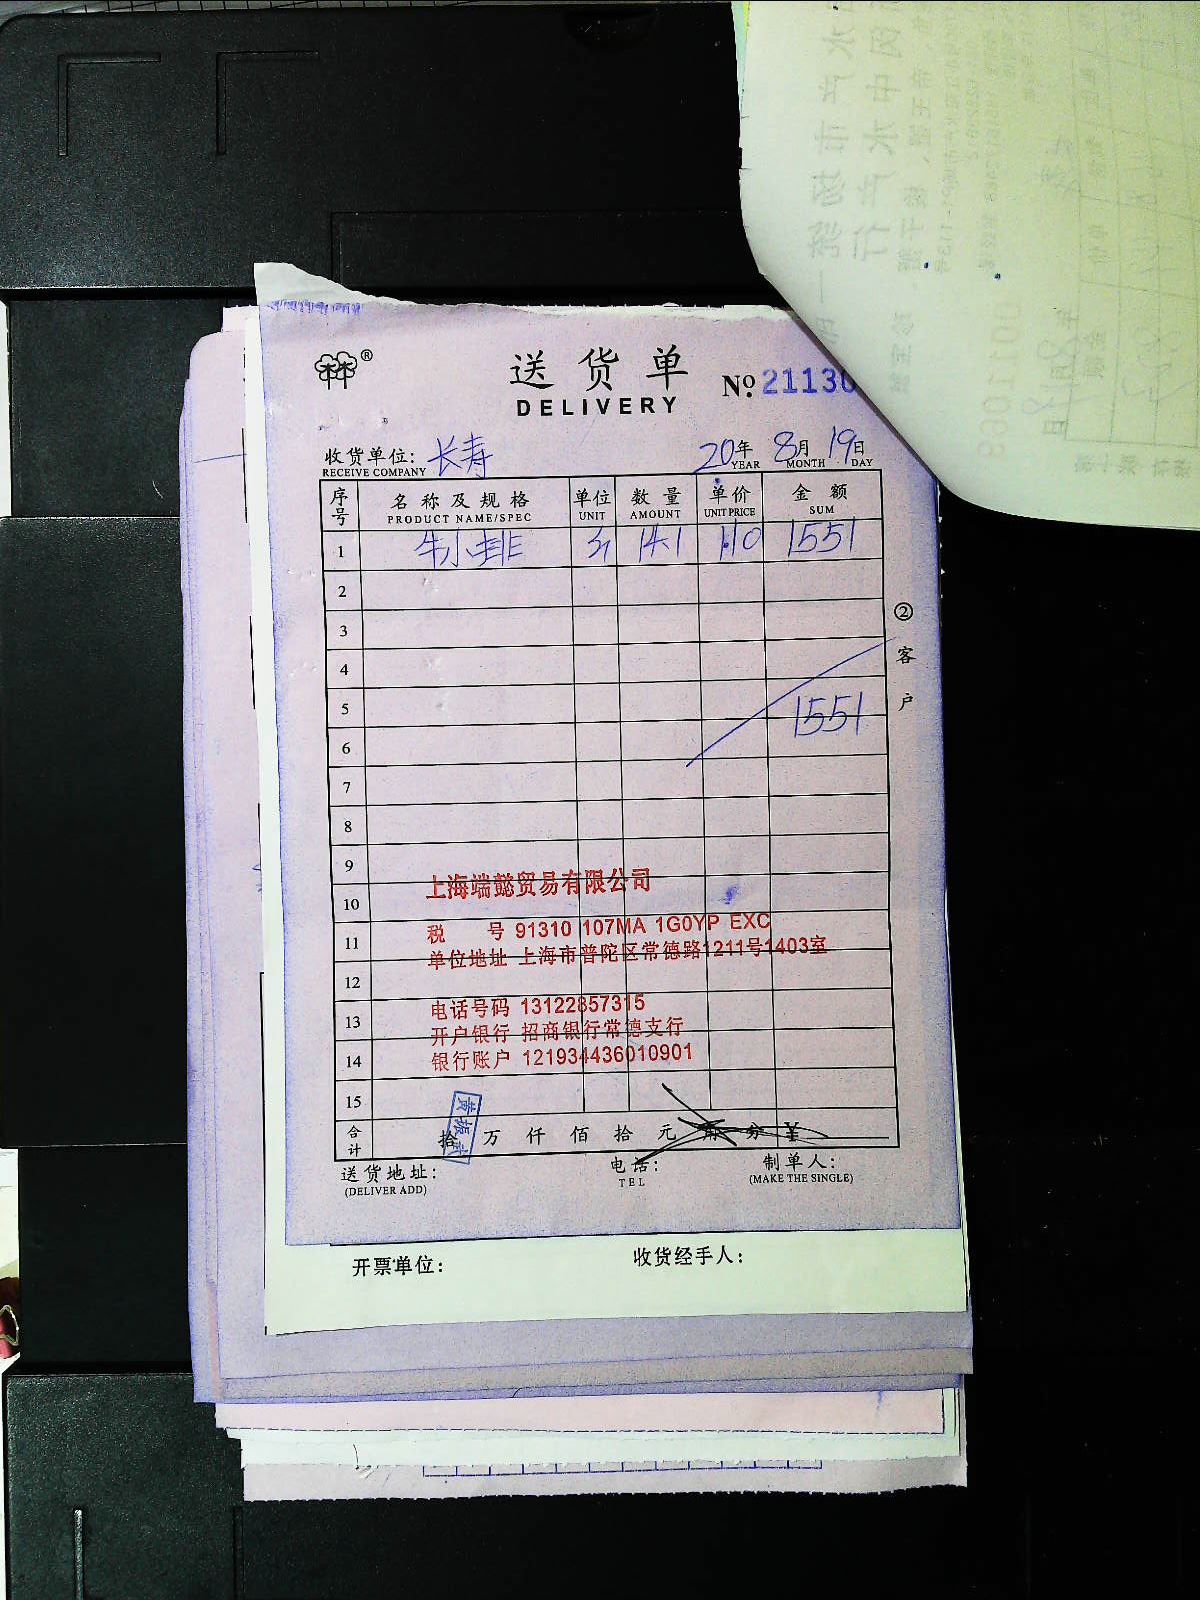 送货单
DELIVERY
№ 21130
收货单位: 长寿
RECEIVE COMPANY
20年 8月 19日
YEAR MONTH DAY
序号 名称及规格 单位 数量 单价 金额
PRODUCT NAME/SPEC UNIT AMOUNT UNIT PRICE SUM
1 牛小排 斤 14.1 110 1551
2
3
4
5 1551
6
7
8
9
10
11
12
13
14
15
②客户
上海端懿贸易有限公司
税 号 91310 107MA 1G0YP EXC
单位地址 上海市普陀区常德路1211号1403室
电话号码 13122857315
开户银行 招商银行常德支行
银行账户 121934436010901
合计 拾 万 仟 佰 拾 元 角 分 ¥
黄振武
送货地址: 电话: 制单人:
(DELIVER ADD) TEL (MAKE THE SINGLE)
开票单位: 收货经手人: